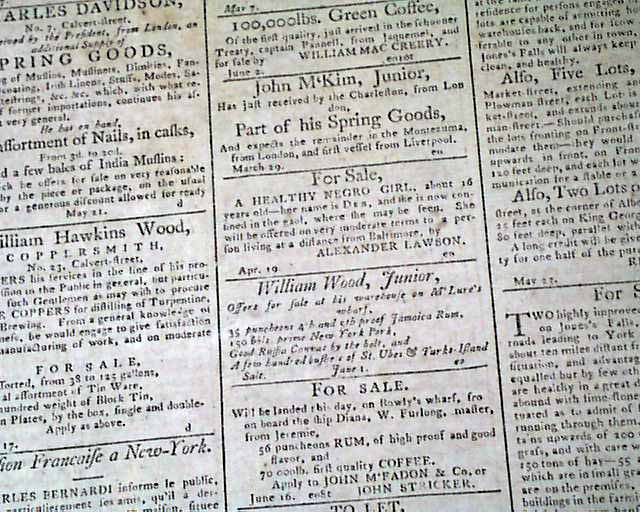 ARLES DAVIDSON,
No. 7, Calvert-street,
ceived by the President, from London, an
additional Supply of
PRING GOODS,
ng of Muslins, Muslinets, Dimities, Fan-
Irish Linens, Stuffs, Modes, Sa-
&c. &c. which, with what re-
f former importations, continues his as-
very general.
He has on hand,
Assortment of Nails, in casks,
From 3d. to 20d.
d a few bales of India Muslins:
ich he offers for sale on very reasonable
by the piece or package, on the usual
or a generous discount allowed for ready
May 21. d
illiam Hawkins Wood,
COPPERSMITH,
No. 23, Calvert-street,
ERS his services in the line of his pro-
ssion to the Public in general, but particu-
such Gentlemen as may with to procure
R COPPERS for distilling of Turpentine,
Brewing. From a general knowledge of
iness, he would engage to give satisfaction
manufacturing of work, and on moderate
FOR SALE,
forted, from 38 to 125 gallons,
al assortment of Tin Ware,
hundred weight of Block Tin,
n Plates, by the box, single and double-
Apply as above.
17. d
ion Francaise a New-York.
RLES BERNARDI informe le public,
particulierement les amis, qu'il a des-
maison, situee
May 7.
100,000lbs. Green Coffee,
Of the first quality, just arrived in the schooner
Treaty, captain Pannell, from Jaquemel, and
for sale by WILLIAM MAC CREERY.
June 2. eo10t
John McKim, Junior,
Has just received by the Charleston, from Lon
don,
Part of his Spring Goods,
And expects the remainder in the Montezuma,
from London, and first vessel from Liverpool.
March 29. eo
For Sale,
A HEALTHY NEGRO GIRL, about 16
years old—her name is and she is now con-
fined in the gaol, where she may be seen. She
will be offered on very moderate terms to a per-
son living at a distance from Baltimore, by
ALEXANDER LAWSON.
Apr. 19. eo
William Wood, Junior,
Offers for sale at his warehouse on McLure's
wharf,
35 puncheons 4th and 5th proof Jamaica Rum,
150 bbls. prime New York Pork,
Good Russia Canvas by the bolt, and
A few hundred bushels of St. Ubes & Turks-Island
Salt. June 1. eo
FOR SALE.
Will be landed this day, on Bowly's wharf, fro
on board the ship Diana, W. Furlong, master,
from Jeremie,
56 puncheons RUM, of high proof and good
flavor, and
70 00lb. first quality COFFEE.
Apply to JOHN M'FADON & Co. or
June 16. eo8t JOHN STRICKER.
TO LET,
reference for persons engaged
lots are capable of admitting
warehouses back, and for
ferable to any other in town,
Jones's Falls will always keep
clean, and healthy.
Also, Five Lots,
Market-street, extending
Plowman street, each
ket-street, and extends about
man-street.—Should purchas
the lots fronting on Front-st
modate them—they would
upwards in front, on Front
120 feet deep, and each lot
munication for a stable or a
Also, Two Lots
street, at the corner of Albe
25 feet each on King Geor
80 feet deep, parallel with
Along credit will be give
ty for one half of the purc
May 27.
For S
TWO highly improve
on Jones's Falls
roads leading to York
about ten miles distant fr
situation, and advantag
equalled but by few oth
are healthy in a great
abound with lime-stone
tuated as to admit of
running through them
tains upwards of 200
grass, and with care w
150 tons of hay—55
which are in small grai
are on the premises,
buildings in the farm